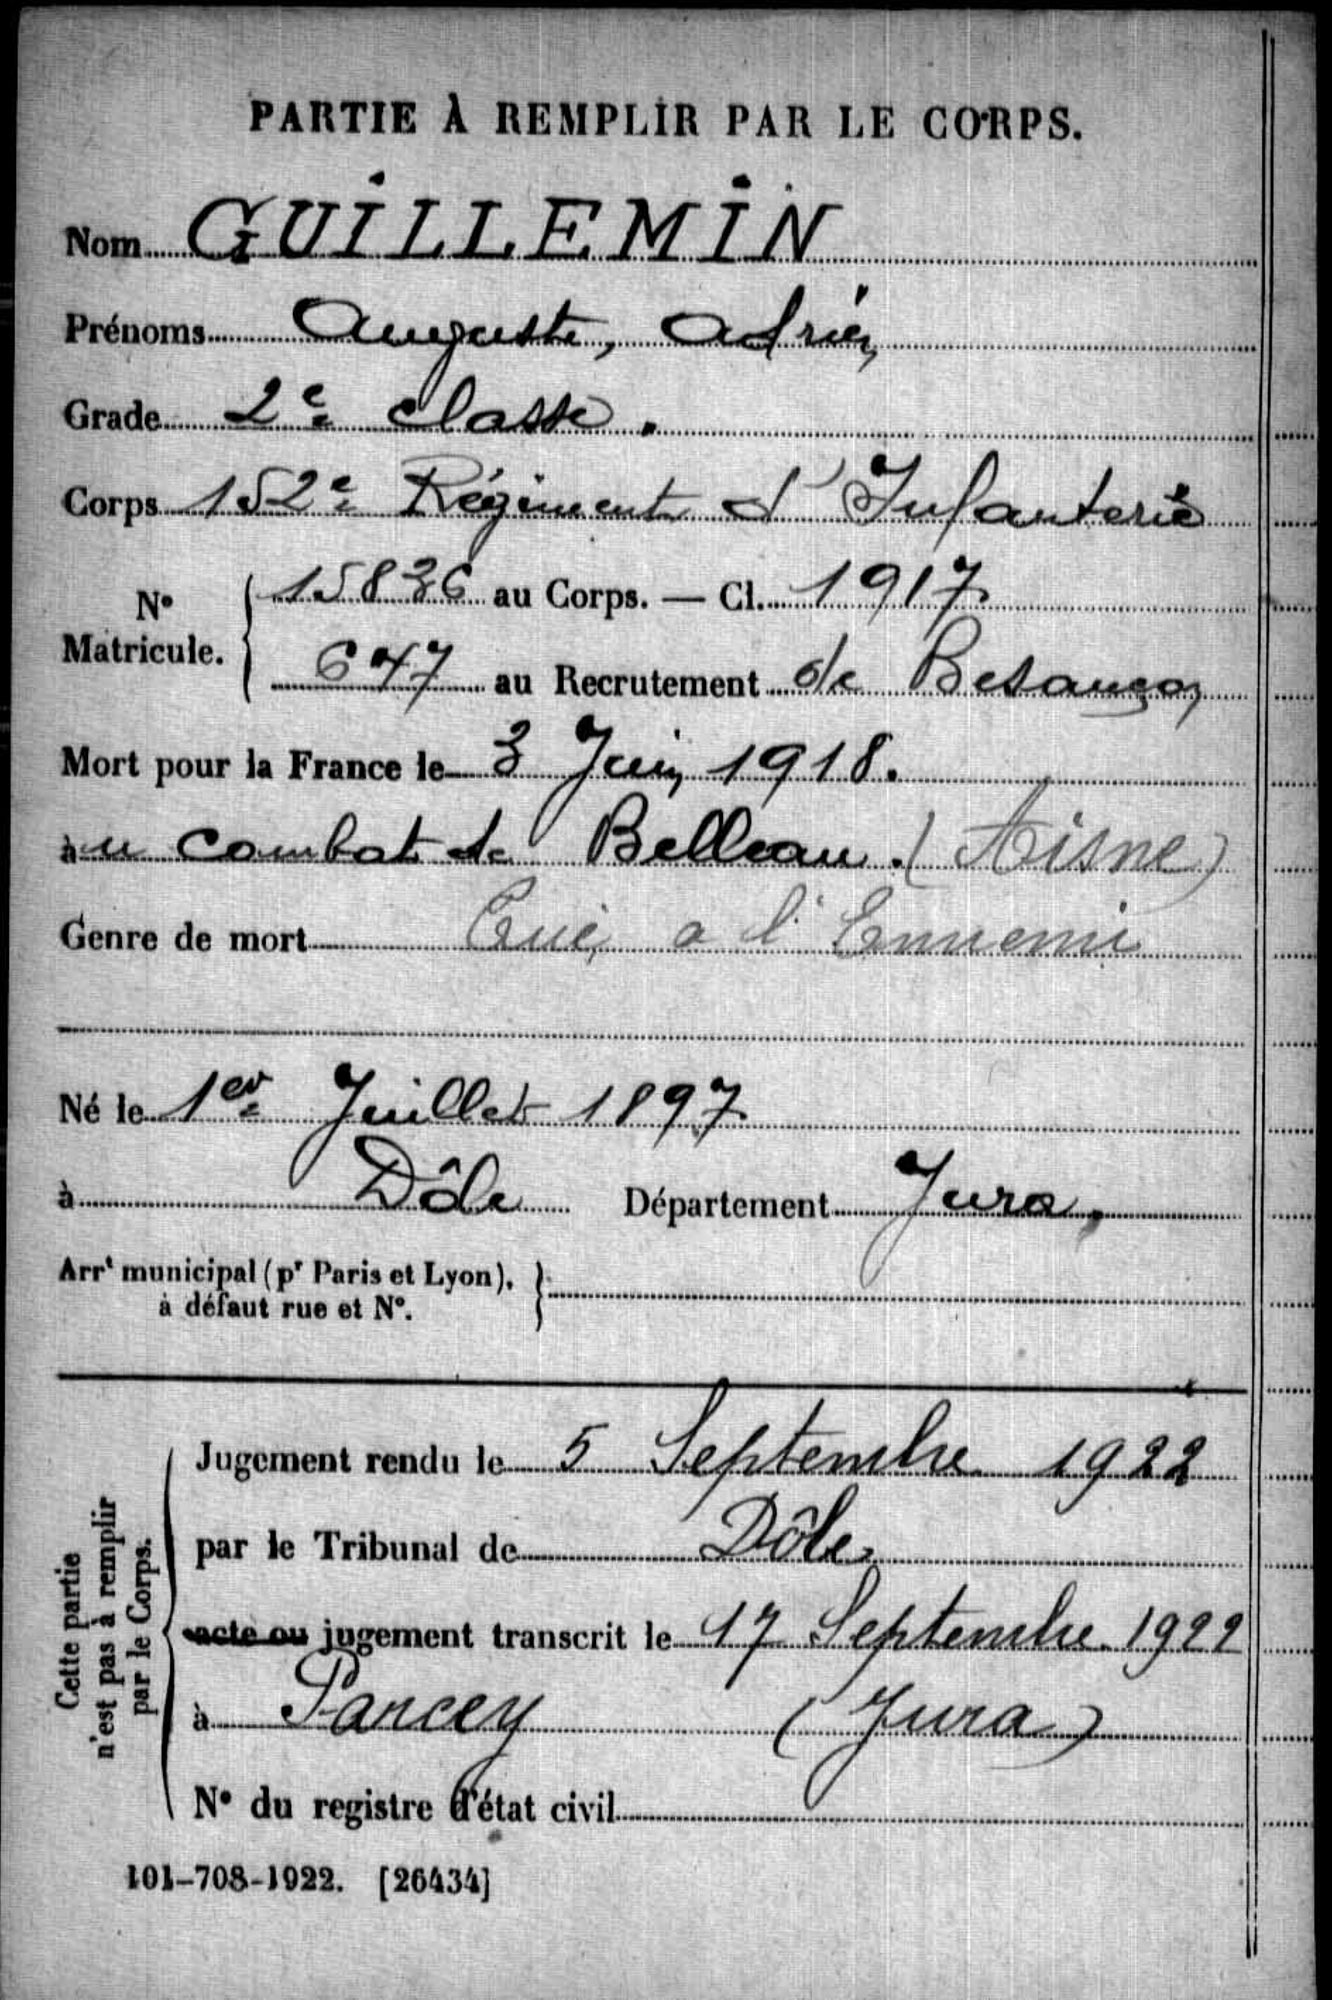 PARTIE À REMPLIR PAR LE CORPS.
Nom GUILLEMIN
Prénoms Auguste, Adrien
Grade 2e classe.
Corps 152e Régiment d'Infanterie
N° Matricule. 15836 au Corps. — Cl. 1917
647 au Recrutement de Besançon
Mort pour la France le 3 Juin 1918.
au combat de Belleau. (Aisne)
Genre de mort Tué a l'Ennemi
Né le 1er Juillet 1897
à Dôle Département Jura.
Arrt municipal (pr Paris et Lyon),
à défaut rue et N°.
Cette partie
n'est pas à remplir
par le Corps.
Jugement rendu le 5 Septembre 1922
par le Tribunal de Dôle
acte ou jugement transcrit le 17 Septembre 1922
à Parcey (Jura)
N° du registre d'état civil
101-708-1922. [26434]